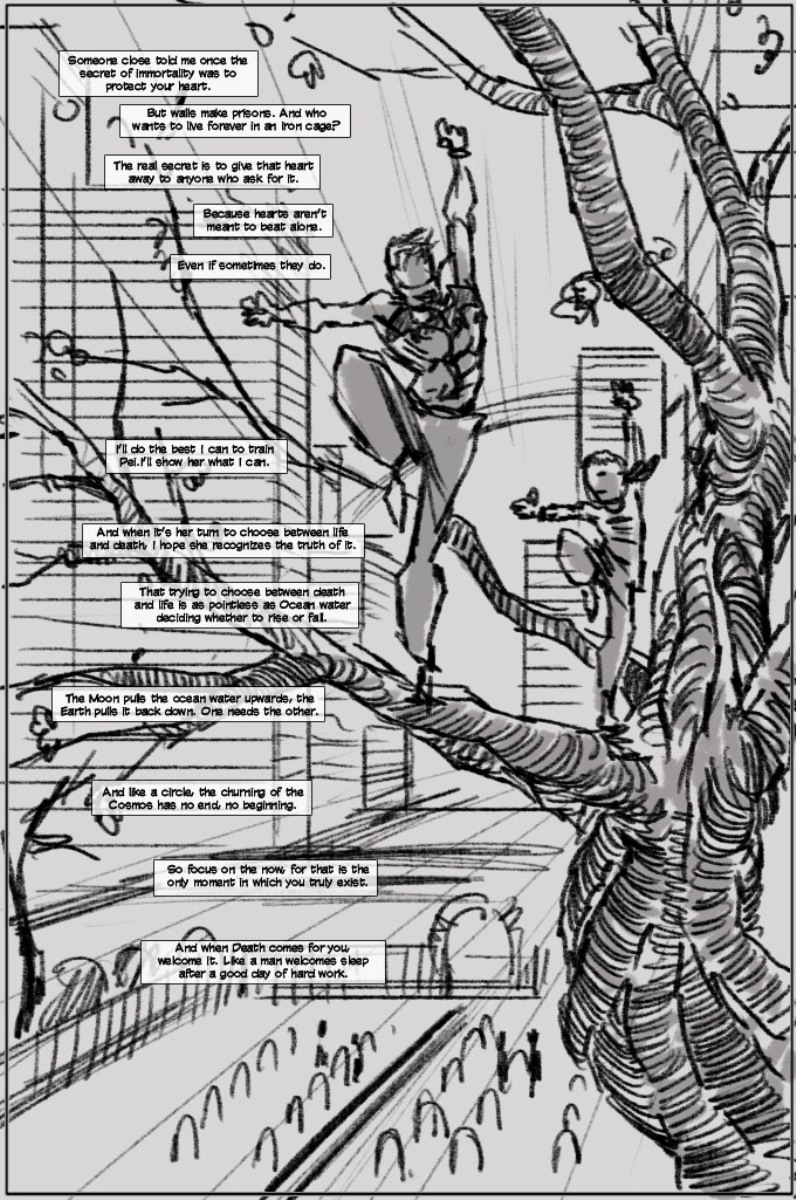 Someone close told me once the
secret of immortality was to
protect your heart.
But walls make prisons. And who
wants to live forever in an iron cage?
The real secret is to give that heart
away to anyone who ask for it.
Because hearts aren't
meant to beat alone.
Even if sometimes they do.
I'll do the best I can to train
Pei.I'll show her what I can.
And when it's her turn to choose between life
and death, I hope she recognizes the truth of it.
That trying to choose between death
and life is as pointless as Ocean water
deciding whether to rise or fall.
The Moon pulls the ocean water upwards, the
Earth pulls it back down. One needs the other.
And like a circle, the churning of the
Cosmos has no end, no beginning.
So focus on the now, for that is the
only moment in which you truly exist.
And when Death comes for you,
welcome it. Like a man welcomes sleep
after a good day of hard work.